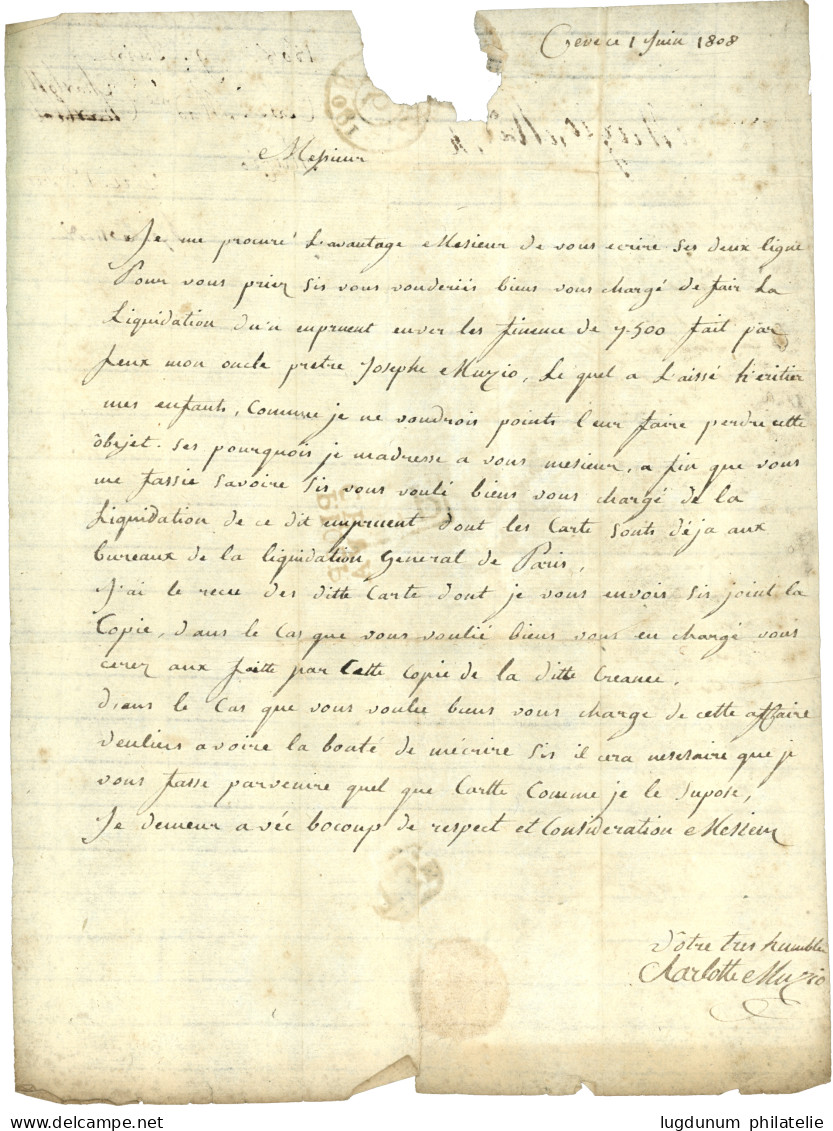 1 Juin 1808
Mesieur
Je me procuré L'avantage Mesieur de vous ecrire ses deux ligne
Pour vous prier sis vous vouderiés biens vous chargé de fair La
Liquidation d'un enpruent enver les finence de 7-500 fait par
feux mon oncle pretre Josephe Muzio, Le quel a Laissé h'eritier
mes enfants, Comme je ne voudrois points leur faire perdre cette
objet. Ses pourquois je m'adresse a vous mesieur, a fin que vous
me fassié savoire sis vous voulé biens vous chargé de la
Liquidation de ce dit enpruent dont les Carte sonts déja aux
bureaux de la liquidation General de Paris,
J'ai le recu des ditte Carte dont je vous envois sis joint la
Copie, dans le Cas que vous voulié biens vous en chargé vous
cerez aux faitte par Cette Copie de la ditte Creance,
dans le Cas que vous voulie biens vous charge de cette affaire
veuliers avoire la bouté de mécrire sis il cera nesesaire que je
vous fasse parvenire quel que Cartte Comme je le supose,
Je demeur avéc bocoup de respect et Consideration Mesieur
Votre tres humble
Charlotte Muzio
lugdunum philatelie